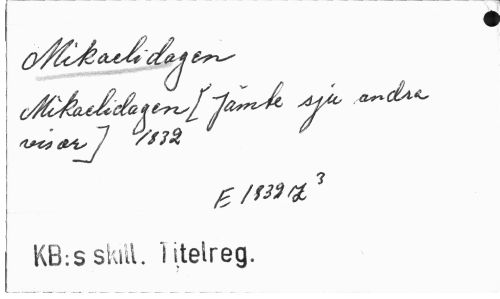 Mikaelidagen
Mikaelidagen [Jämte sju andra
visor] 1832
E 1832 Z 3
KB:s skill. Titelreg.